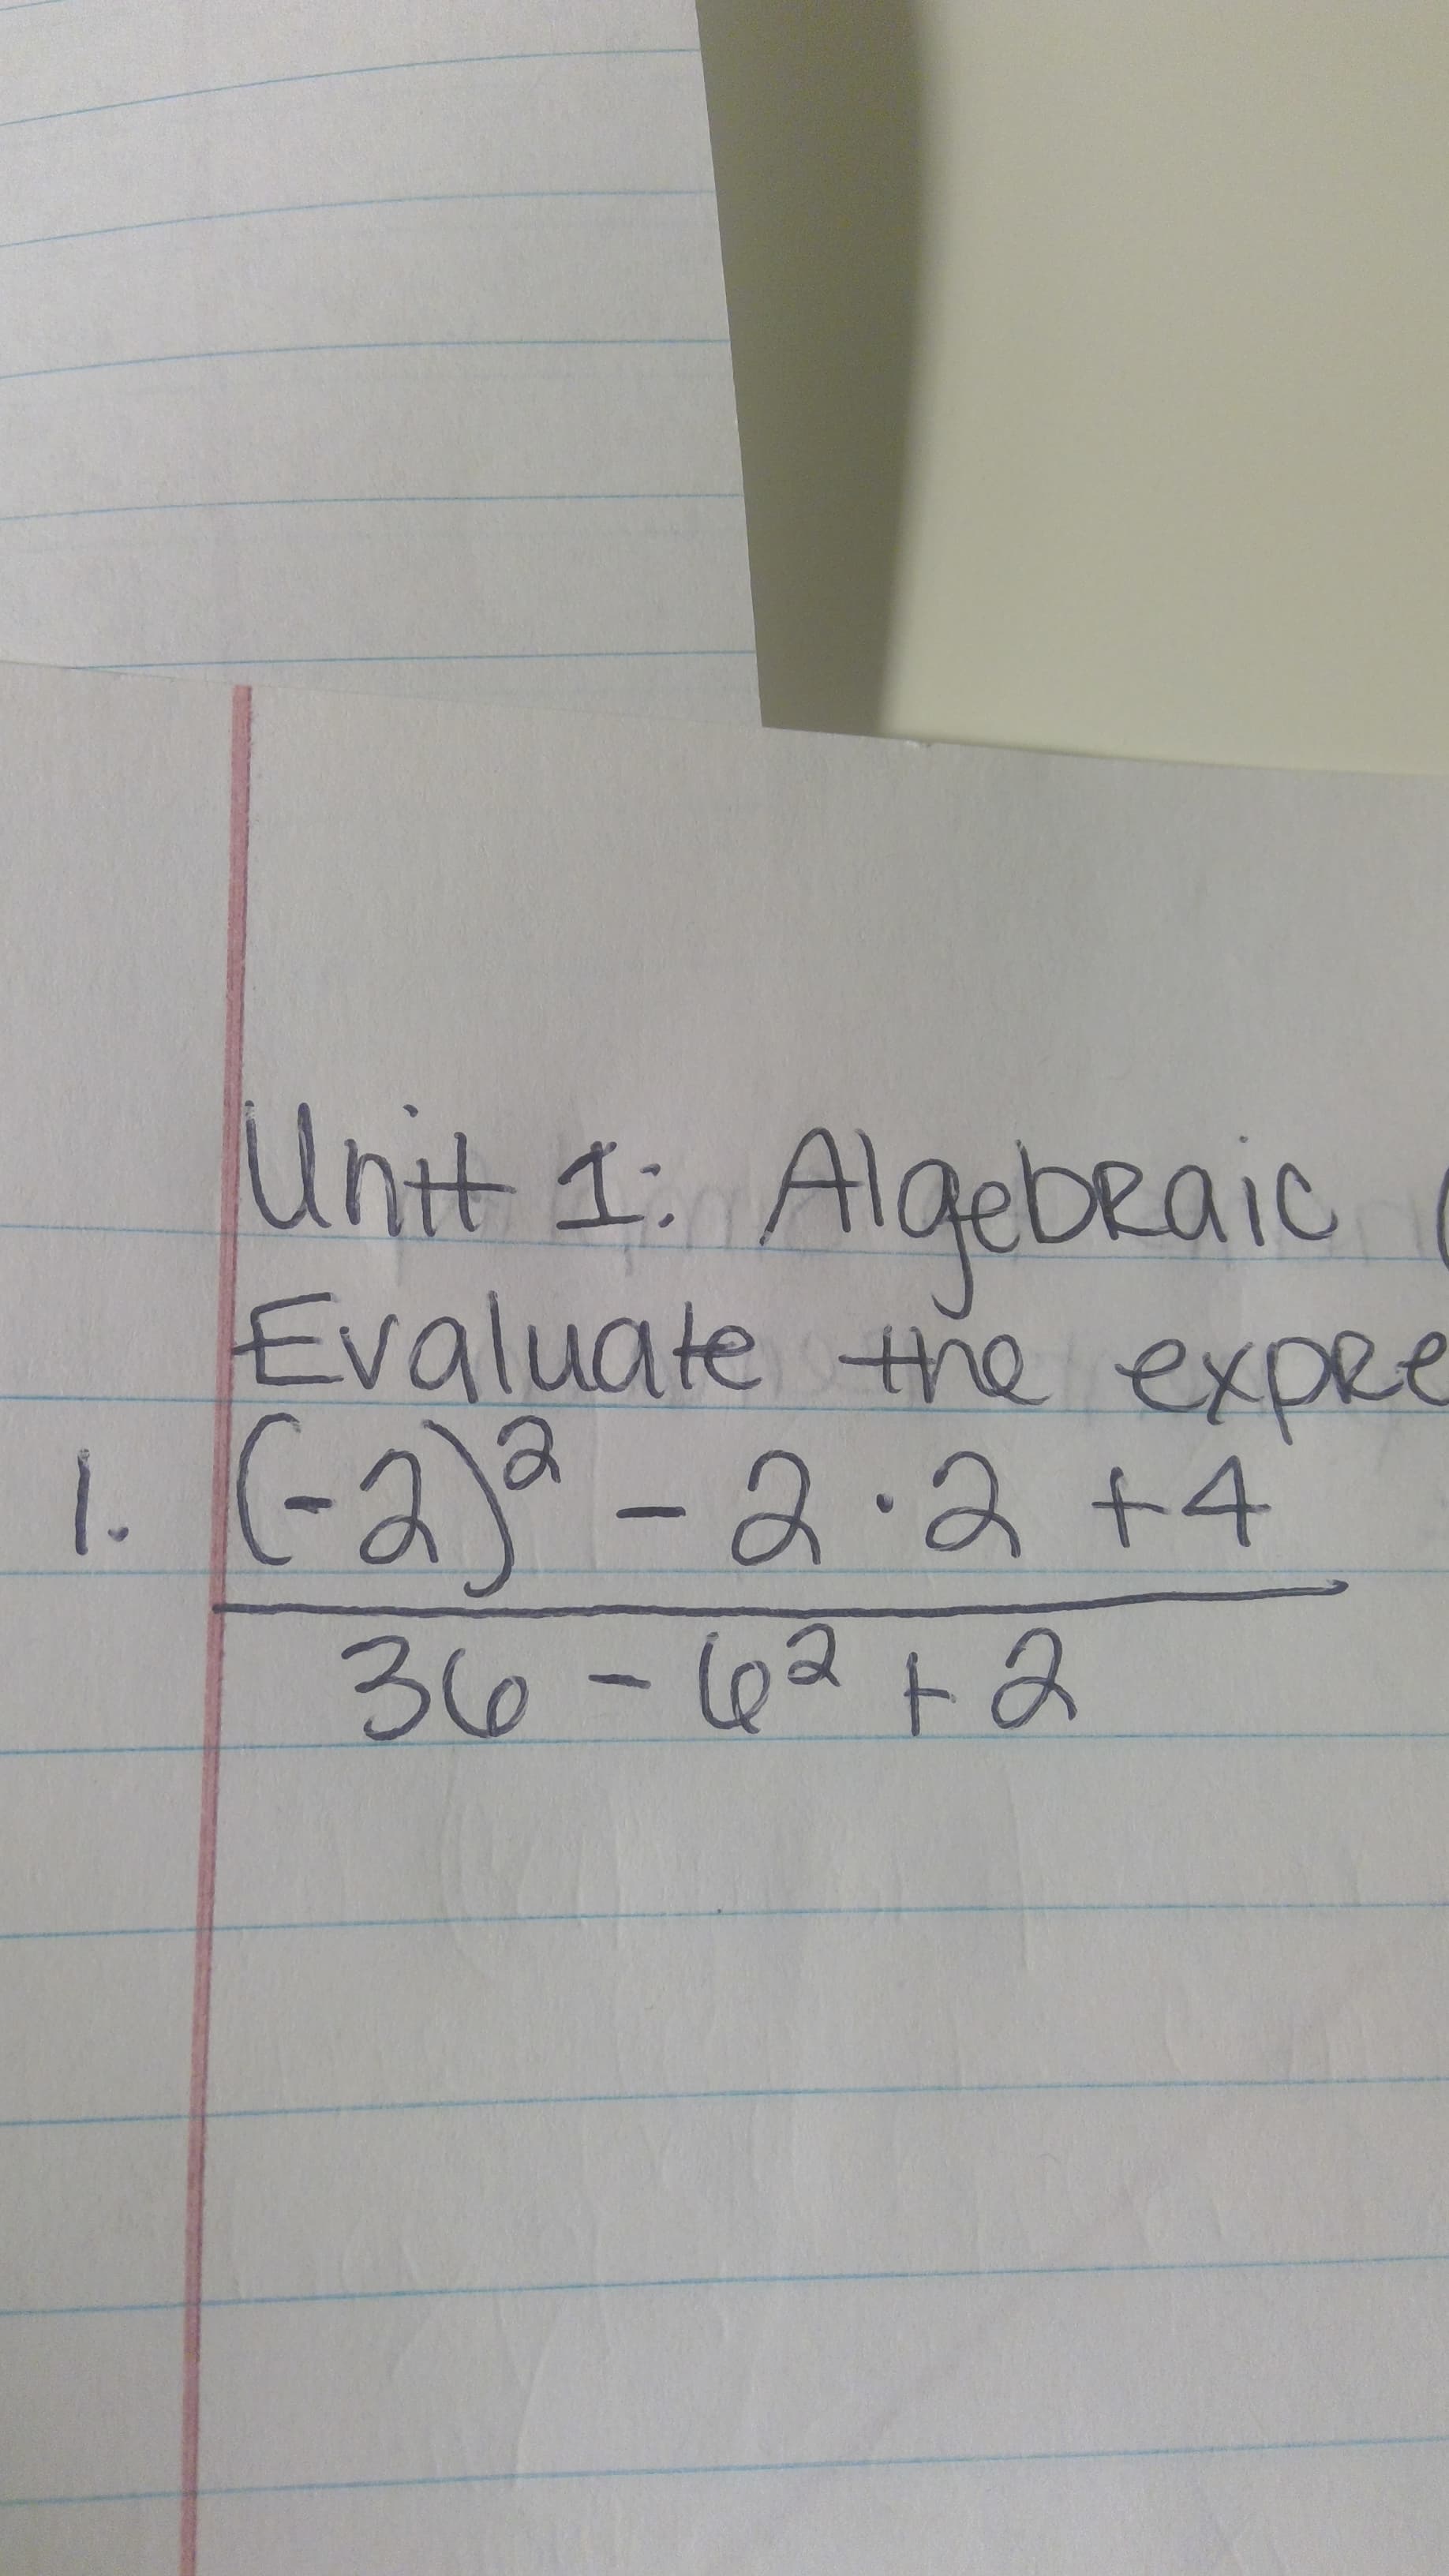 Unit 1: Algebraic
Evaluate the expre
1. (-2)² - 2 · 2 + 4
36 - 6² + 2